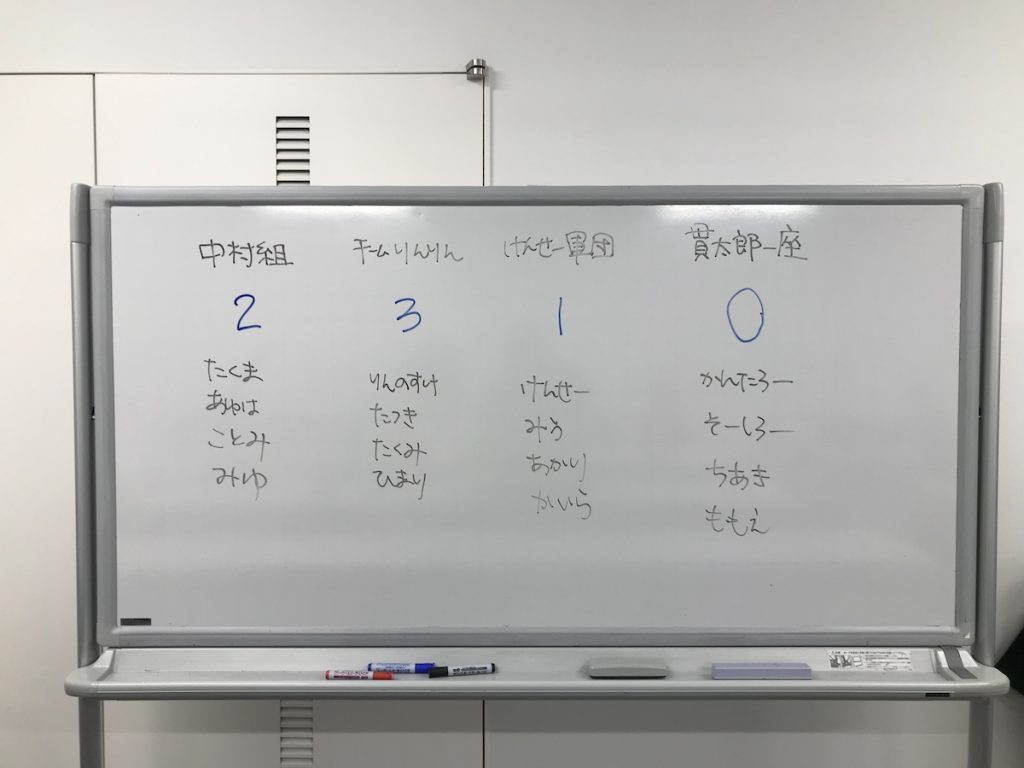 中村組
2
たくま
あゆは
ことみ
みゆ
チームりんりん
3
りんのすけ
たつき
たくみ
ひまり
けんせー軍団
1
けんせー
みう
あかり
かいら
貫太郎一座
0
かんたろー
そーしろー
ちあき
ももえ